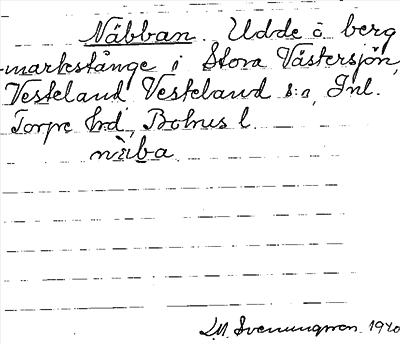 Näbban. Udde å berg
-markstånge i Stora Västersjön,
Vesteland Vesteland s:a, Inl.
Torpe hrd, Bohus l.
näba
1940